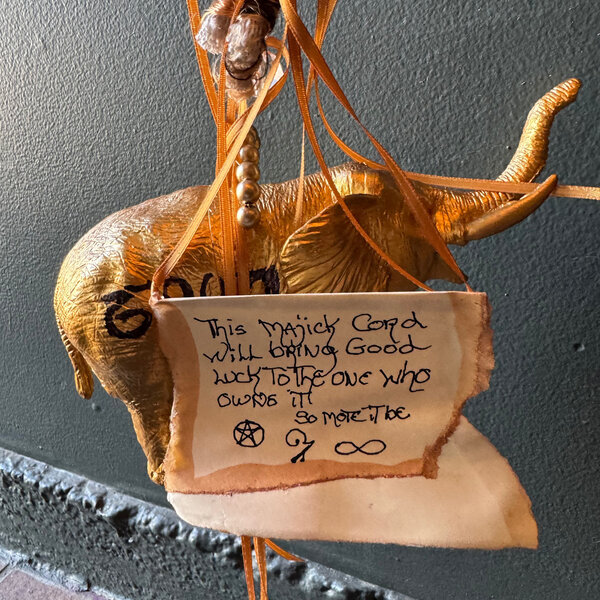 This MAJick Cord
will bring Good
Luck To The one who
owns iT!
So MoTe iT be